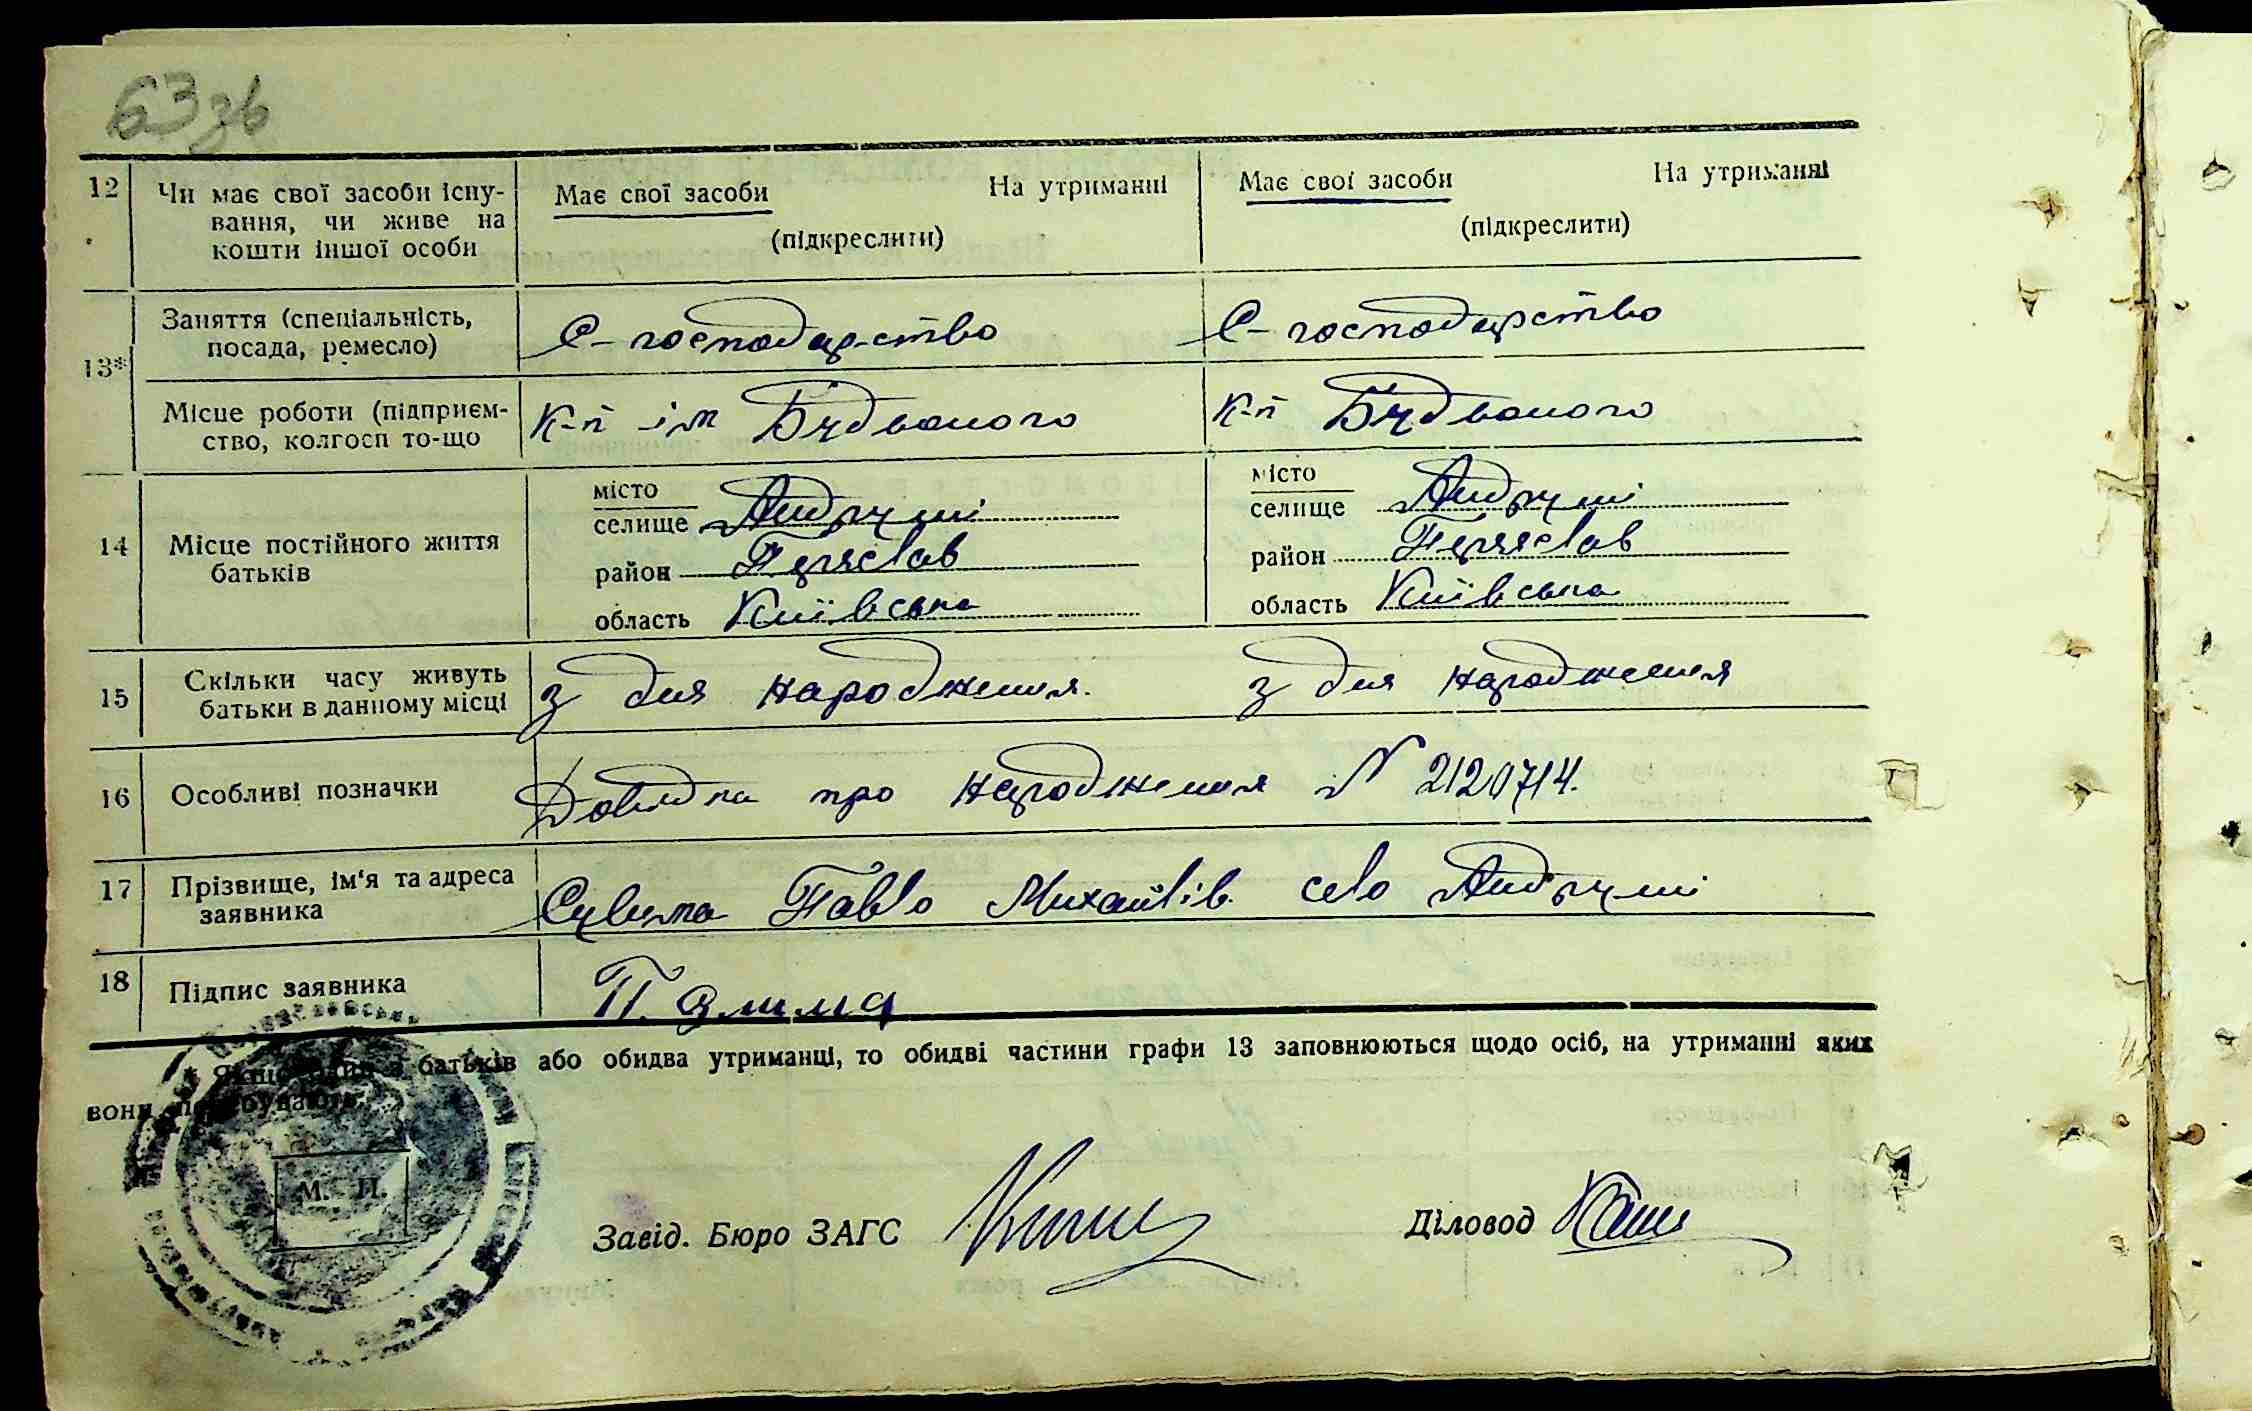 63 зв
12 Чи має свої засоби існу-
вання, чи живе на
кошти іншої особи
Має свої засоби На утриманні
(підкреслити)
Має свої засоби На утриманні
(підкреслити)
13*
Заняття (спеціальність,
посада, ремесло)
С-господарство
С-господарство
Місце роботи (підприєм-
ство, колгосп то-що
К-п ім Будьоного
К-п Будьоного
14 Місце постійного життя
батьків
місто
селище Андруші
район Переяслав
область Київська
місто
селище Андруші
район Переяслав
область Київська
15 Скільки часу живуть
батьки в данному місці
з дня народження.
з дня народження
16 Особливі позначки
Довідка про народження № 2120714.
17 Прізвище, ім'я та адреса
заявника
Сулима Павло Михайлів. село Андруші
18 Підпис заявника
П.
Якщо один з батьків або обидва утриманці, то обидві частини графи 13 заповнюються щодо осіб, на утриманні яких
вони перебувають.
М. П.
Завід. Бюро ЗАГС
Діловод